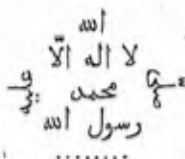 الله
لا اله الّا
محمد
رسول الله